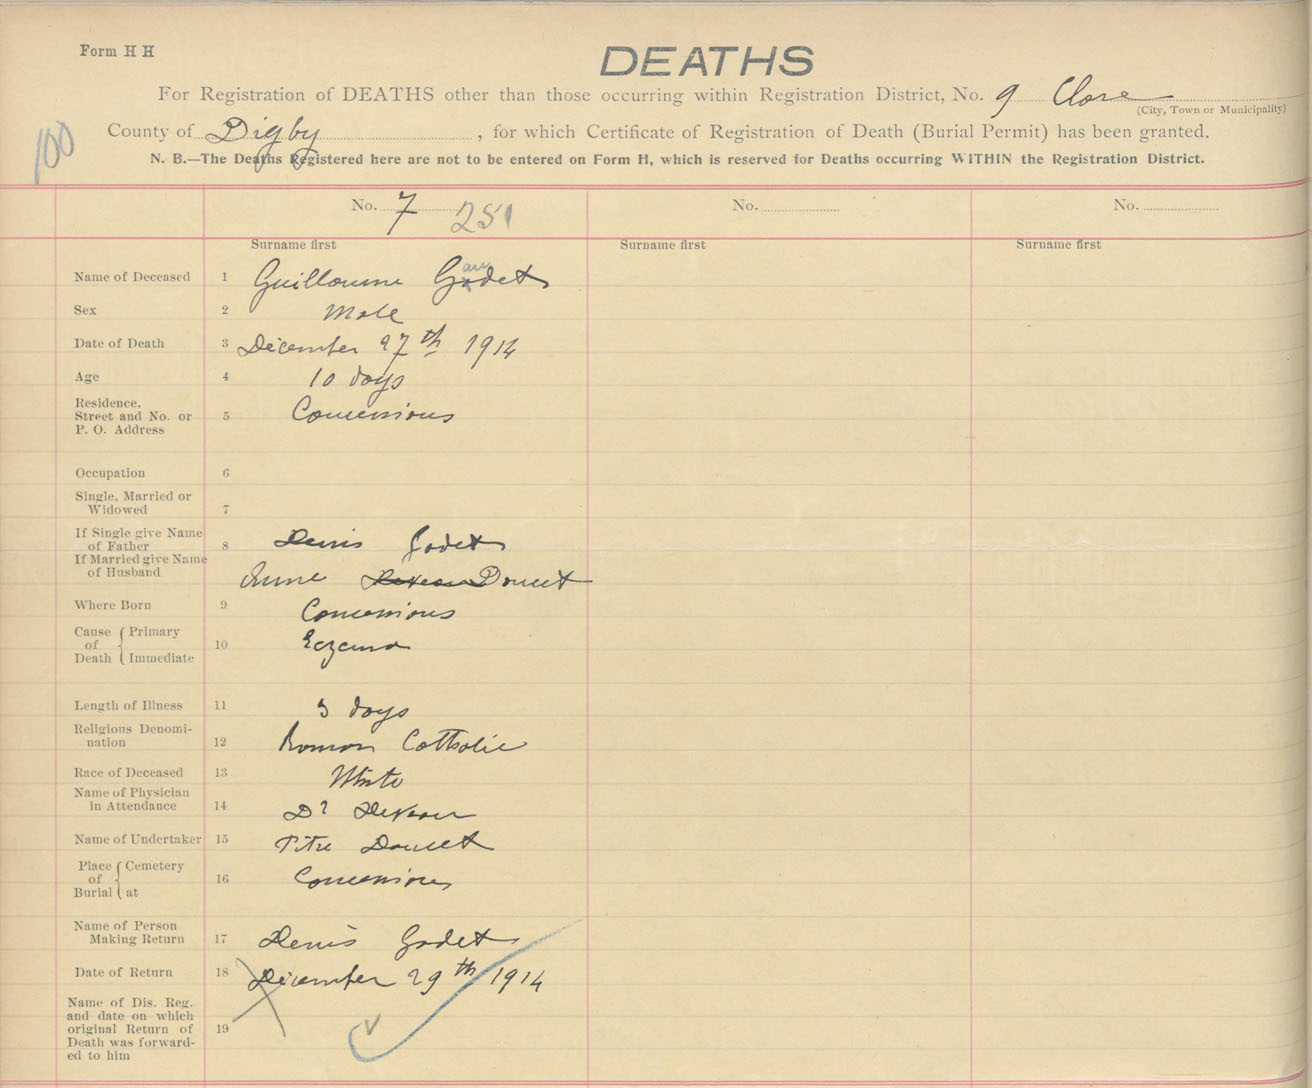 Form H H
DEATHS
For Registration of DEATHS other than those occurring within Registration District, No. 9 Clare
(City, Town or Municipality)
100
County of Digby, for which Certificate of Registration of Death (Burial Permit) has been granted.
N. B.—The Deaths Registered here are not to be entered on Form H, which is reserved for Deaths occurring WITHIN the Registration District.
No. 7 251 No. No.
Surname first Surname first Surname first
Name of Deceased 1 Guillaume Godet
au
Sex 2 Male
Date of Death 3 December 27th 1914
Age 4 10 days
Residence,
Street and No. or 5 Concessions
P. O. Address
Occupation 6
Single, Married or
Widowed 7
If Single give Name
of Father 8 Denis Godet
If Married give Name
of Husband Anne Doucet
Where Born 9 Concessions
Cause of Death { Primary
Immediate 10 Eczema
Length of Illness 11 3 days
Religious Denomi-
nation 12 Roman Catholic
Race of Deceased 13 White
Name of Physician
in Attendance 14 Dr
Name of Undertaker 15 Doucet
Place of Burial { Cemetery
at 16 Concessions
Name of Person
Making Return 17 Denis Godet
Date of Return 18 December 29th 1914
Name of Dis. Reg.
and date on which
original Return of 19
Death was forward-
ed to him